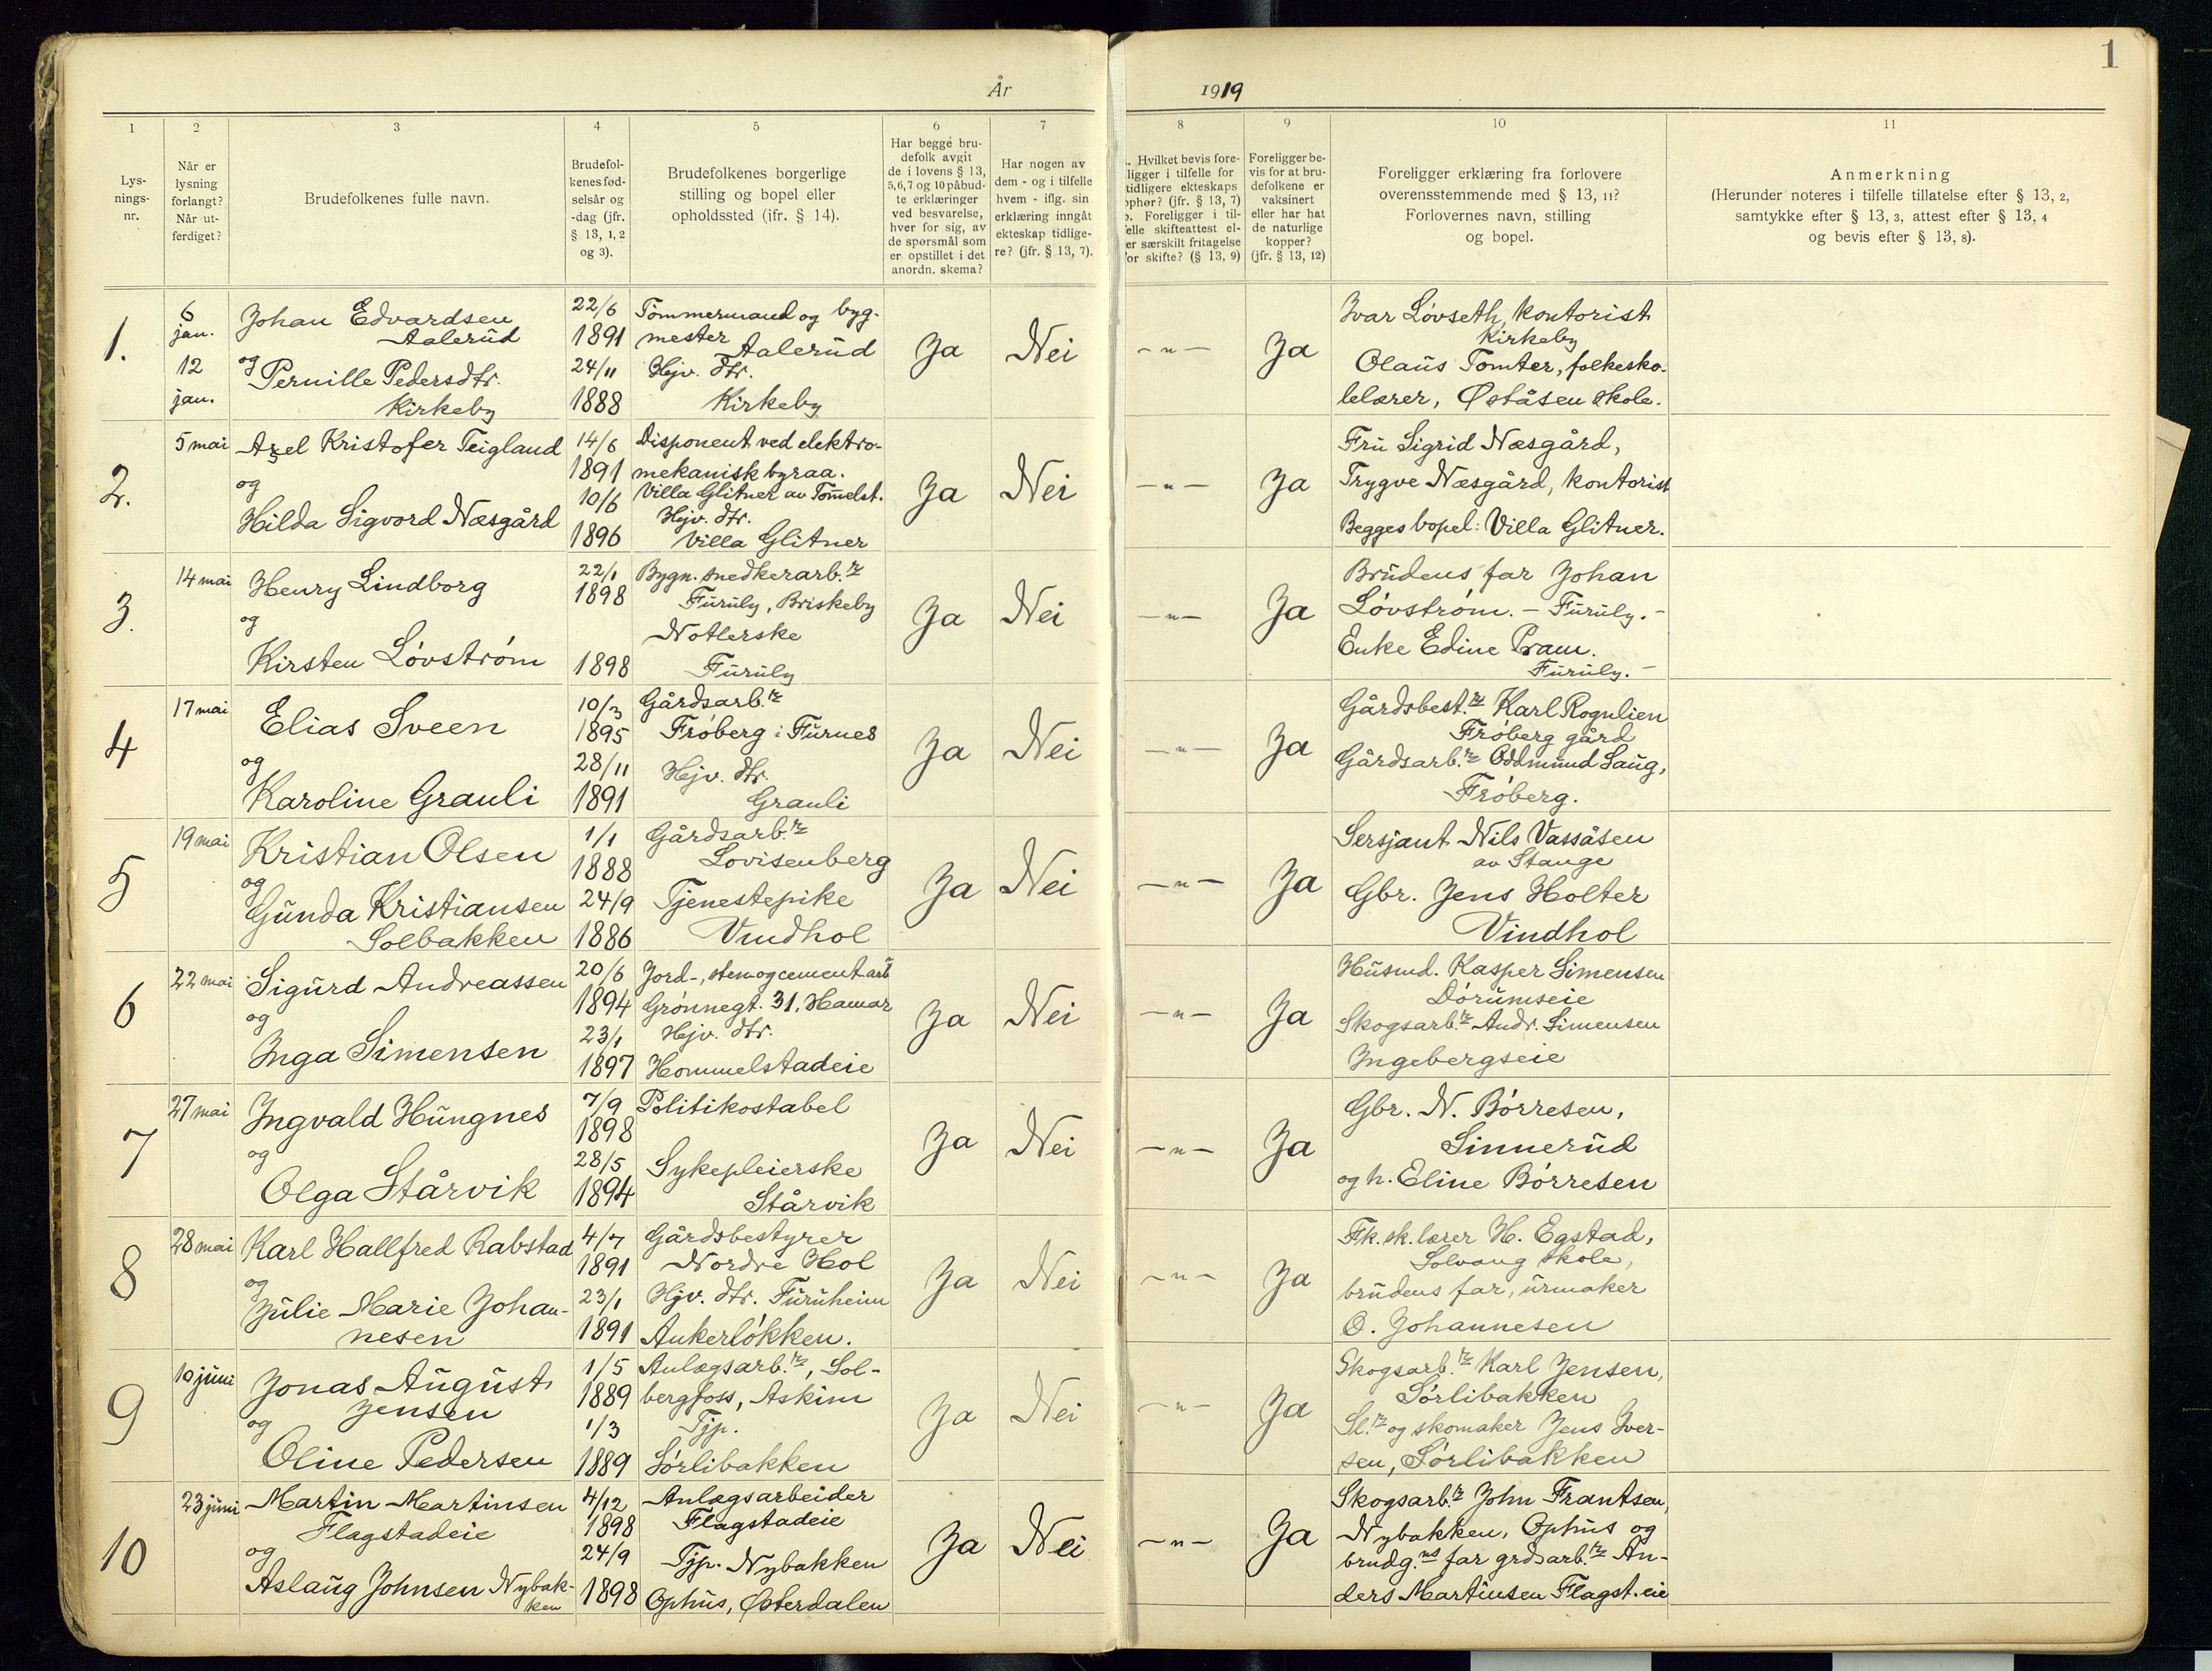 1
År 1919
1 2 3 4 5 6 7 8 9 10 11
Lys-
nings-
nr.
Når er
lysning
forlangt?
Når ut-
ferdiget?
Brudefolkenes fulle navn.
Brudefol-
kenes fød-
selsår og
-dag (jfr.
§ 13, 1, 2
og 3).
Brudefolkenes borgerlige
stilling og bopel eller
opholdssted (jfr. § 14).
Har begge bru-
defolk avgit
de i lovens § 13,
5, 6, 7 og 10 påbud-
te erklæringer
ved besvarelse,
hver for sig, av
de spørsmål som
er opstillet i det
anordn. skema?
Har nogen av
dem - og i tilfelle
hvem - iflg. sin
erklæring inngåt
ekteskap tidlige-
re? (jfr. § 13, 7).
. Hvilket bevis fore-
ligger i tilfelle for
tidligere ekteskaps
ophør? (jfr. § 13, 7)
. Foreligger i til-
felle skifteattest el-
er særskilt fritagelse
for skifte? (§ 13, 9)
Foreligger be-
vis for at bru-
defolkene er
vaksinert
eller har hat
de naturlige
kopper?
(jfr. § 13, 12)
Foreligger erklæring fra forlovere
overensstemmende med § 13, 11?
Forlovernes navn, stilling
og bopel.
Anmerkning
(Herunder noteres i tilfelle tillatelse efter § 13, 2,
samtykke efter § 13, 3, attest efter § 13, 4
og bevis efter § 13, 8).
1.
6
jan.
12
jan.
Johan Edvardsen
Aalerud
og
Pernille Pedersdtr.
Kirkeby
22/6
1891
24/11
1888
Tømmermand og byg-
mester
Aalerud
Hjv. dtr.
Kirkeby
Ja
Nei
-"-
Ja
Ivar Løvseth, kontorist
Kirkeby
Olaus Tomter, folkesko-
lelærer, Øståsen skole.
2.
5 mai
Axel Kristofer Teigland
og
Hilda Sigvord Næsgård
14/6
1891
10/6
1896
Disponent ved elektro-
mekanisk byraa.
Villa Glitner av Tomelst.
Hjv. dtr.
Villa Glitner
Ja
Nei
-"-
Ja
Fru Sigrid Næsgård,
Trygve Næsgård, kontorist
Begges bopel: Villa Glitner.
3.
14 mai
Henry Lindborg
og
Kirsten Løvstrøm
22/1
1898
1898
Bygn. snedkerarb.r
Furuly, Briskeby
Notlerske
Furuly
Ja
Nei
-"-
Ja
Brudens far Johan
Løvstrøm. - Furuly. -
Enke Edine Pram.
Furuly. -
4
17 mai
Elias Sveen
og
Karoline Grauli
10/3
1895
28/11
1891
Gårdsarb.r
Frøberg i Furnes
Hjv. dtr.
Grauli
Ja
Nei
-"-
Ja
Gårdsbest.r Karl Rognlien
Frøberg gård
Gårdsarb.r Oddmund Saug,
Frøberg.
5
19 mai
Kristian Olsen
og
Gunda Kristiansen
Solbakken
1/1
1888
24/9
1886
Gårdsarb.r
Lovisenberg
Tjenestepike
Vindhol
Ja
Nei
-"-
Ja
Sersjant Nils Vassåsen
av Stange
Gbr. Jens Holter
Vindhol
6
22 mai
Sigurd Andreassen
og
Inga Simensen
20/6
1894
23/1
1897
Jord-, sten og cement arb
Grønnegt. 31, Hamar
Hjv. dtr.
Hommelstadeie
Ja
Nei
-"-
Ja
Husmd. Kasper Simensen
Dørumseie
Skogsarb.r Andr. Simensen
Ingebergseie
7
27 mai
Ingvald Hungnes
og
Olga Stårvik
7/9
1898
28/5
1894
Politikostabel
Sykepleierske
Stårvik
Ja
Nei
-"-
Ja
Gbr. N. Børresen,
Sinnerud
og h. Eline Børresen
8
28 mai
Karl Hallfred Rabstad
og
Julie Marie Johan-
nesen
4/7
1891
23/1
1891
Gårdsbestyrer
Nordre Hol
Hjv. dtr. Furuheim
Ankerløkken.
Ja
Nei
-"-
Ja
Fk. sk. lærer H. Egstad,
Solvang skole,
brudens far, urmaker
O. Johannesen
9
10 juni
Jonas August
Jensen
og
Oline Pedersen
1/5
1889
1/3
1889
Anlægsarb.r, Sol-
bergfoss, Askim
Tjp.
Sørlibakken
Ja
Nei
-"-
Ja
Skogsarb.r Karl Jensen,
Sørlibakken
Sl.r og skomaker Jens Iver-
sen, Sørlibakken
10
23 juni
Martin Martinsen
Flagstadeie
og
Aslaug Johnsen Nybak-
ken
4/12
1898
24/9
1898
Anlægsarbeider
Flagstadeie
Tjp. Nybakken
Ophus, Østerdalen
Ja
Nei
-"-
Ja
Skogsarb.r John Frantsen,
Nybakken, Ophus og
brudg.ns far grdsarb.r An-
ders Martinsen Flagst.eie